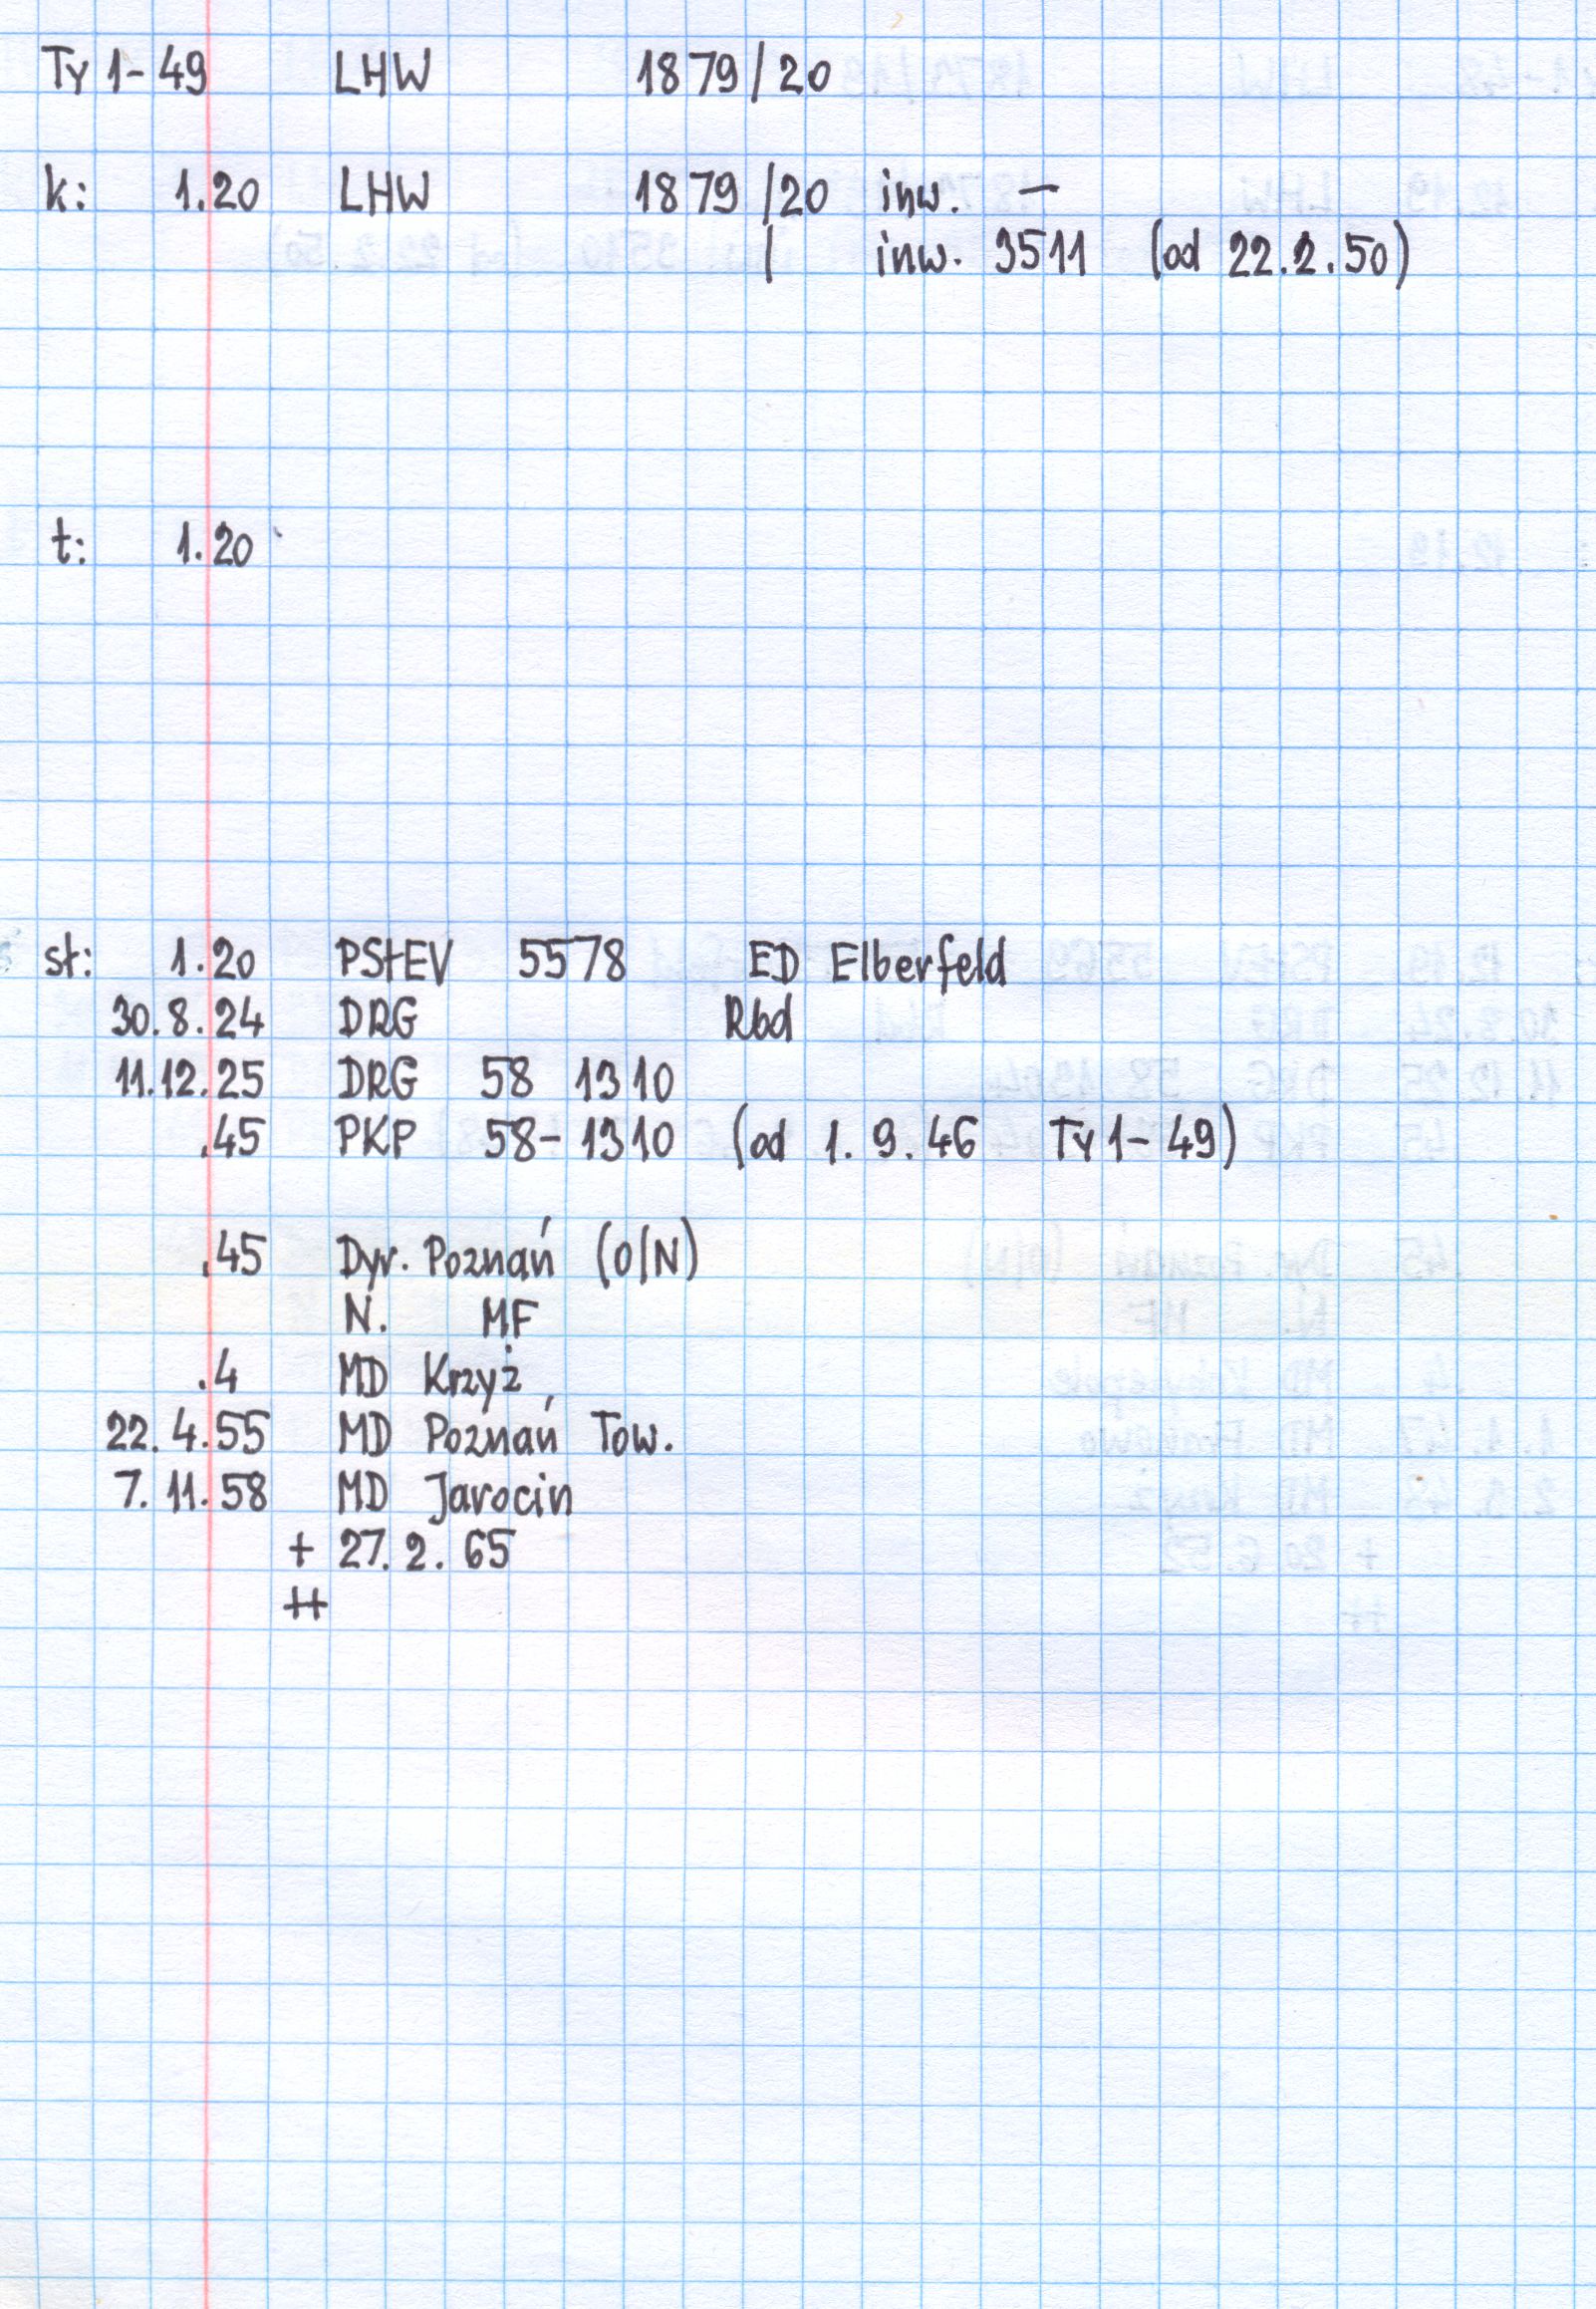 Ty 1-49 LHW 1879/20
k: 1.20 LHW 1879/20 inw. —
/ inw. 3511 (od 22.2.50)
t: 1.20
st: 1.20 PStEV 5578 ED Elberfeld
30.8.24 DRG Rbd
11.12.25 DRG 58 1310
.45 PKP 58-1310 (od 1.9.46 Ty1-49)
.45 Dyr. Poznań (O/N)
N. MF
.4 MD Krzyż
22.4.55 MD Poznań Tow.
7.11.58 MD Jarocin
+ 27.2.65
++